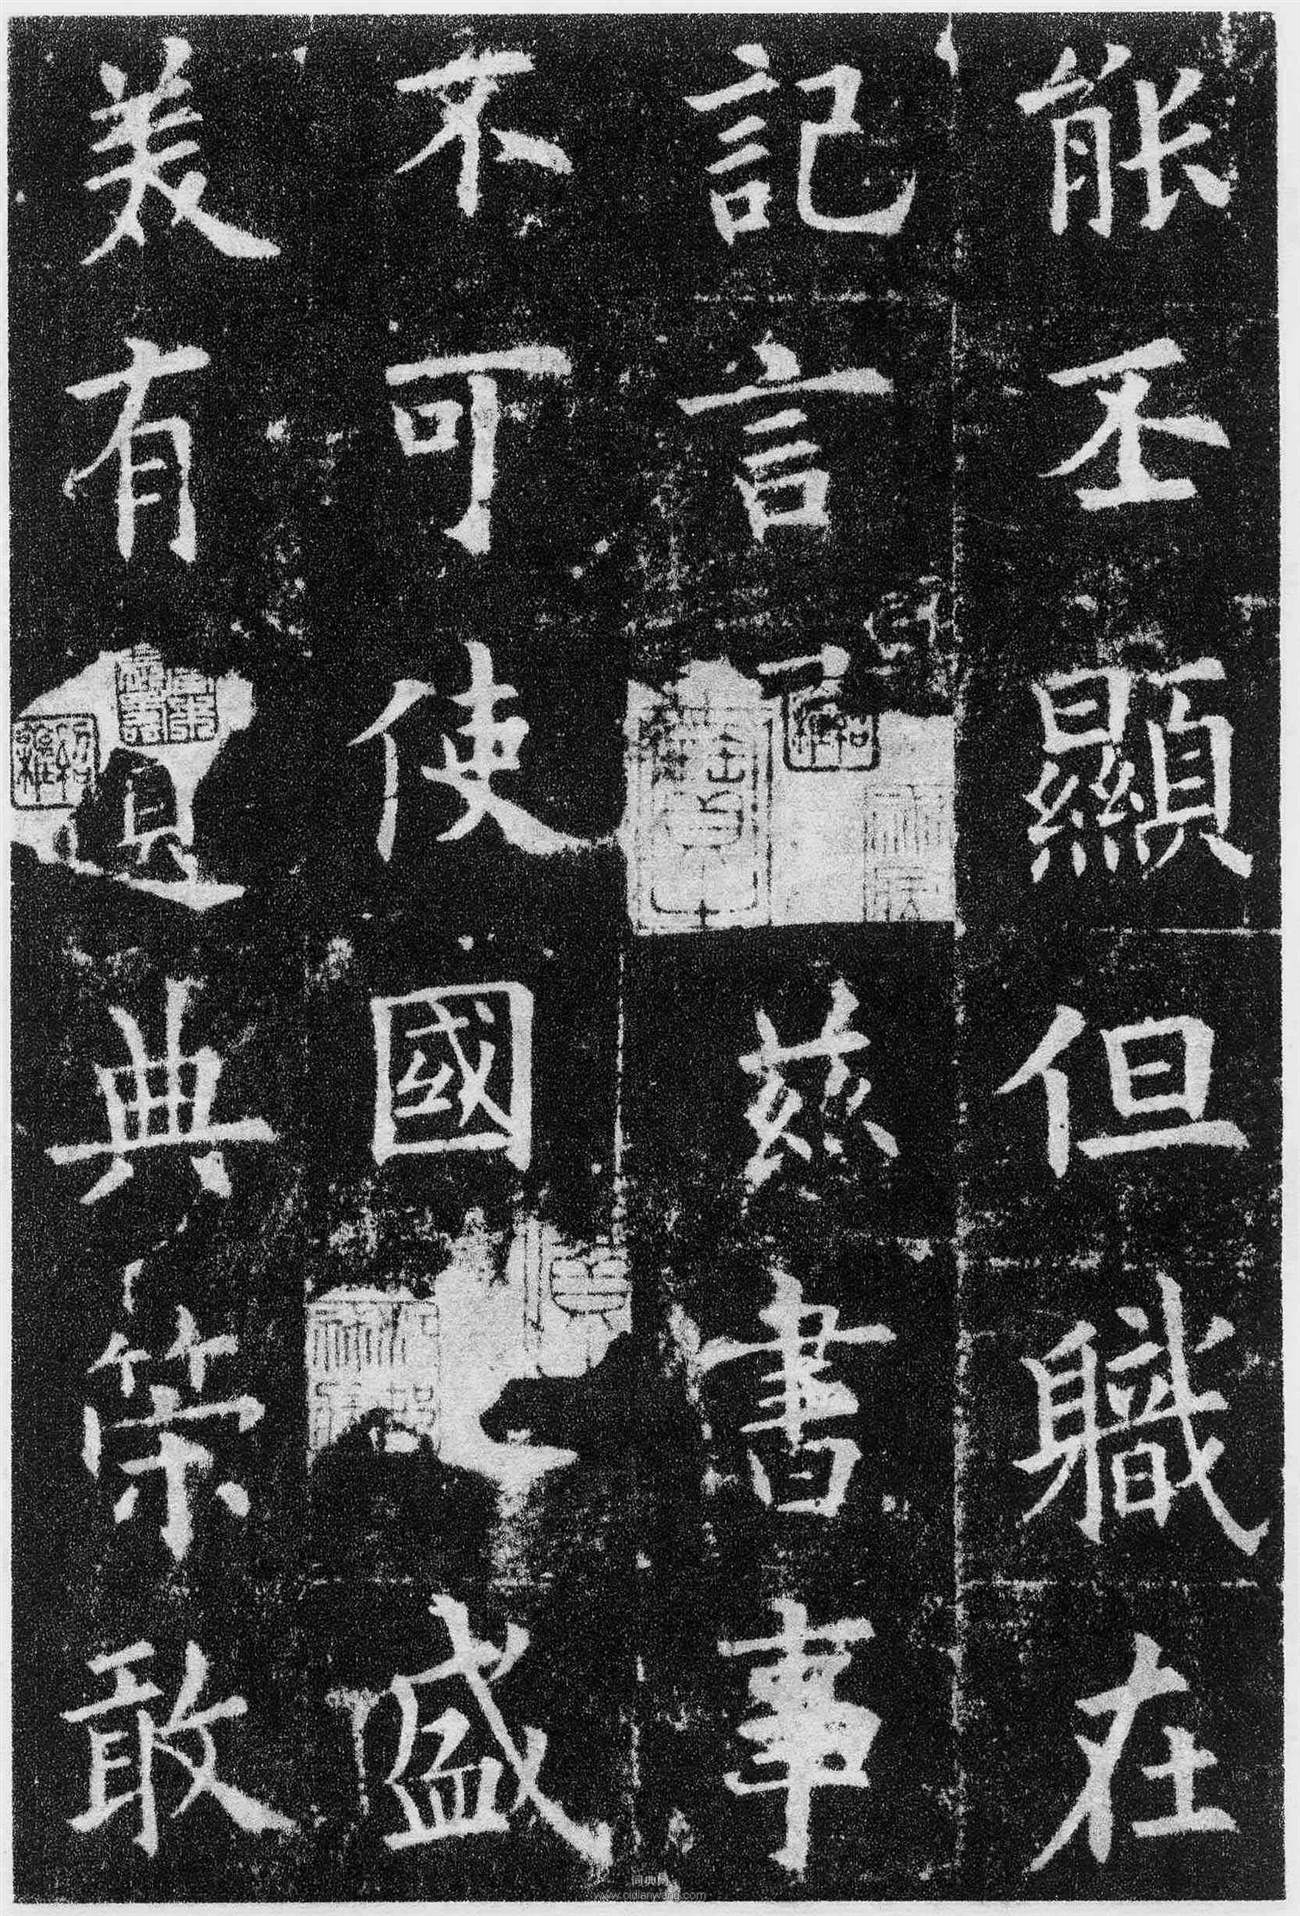 能丕顯但軄在
記言茲書事
不可使國盛
美有遺典崇敢